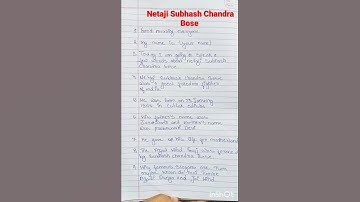 Netaji Subhash Chandra
Bose
Good morning everyone
My name is (your name)
Today I am going to speak a
few lines about netaji subhash
Chandra bose
Netaji Subhash Chandra Bose
was a great freedom fighter
of india
He was born on 23 January
1897 in Cuttak odisha
His father's name was
Janakinath and mother's name
was
He gave up his life for motherland
The Azad Hind Fauj was formed
by Subhash Chandra Bose
His famous slogans are Tum
mujhe khoon do
and Jai Hind